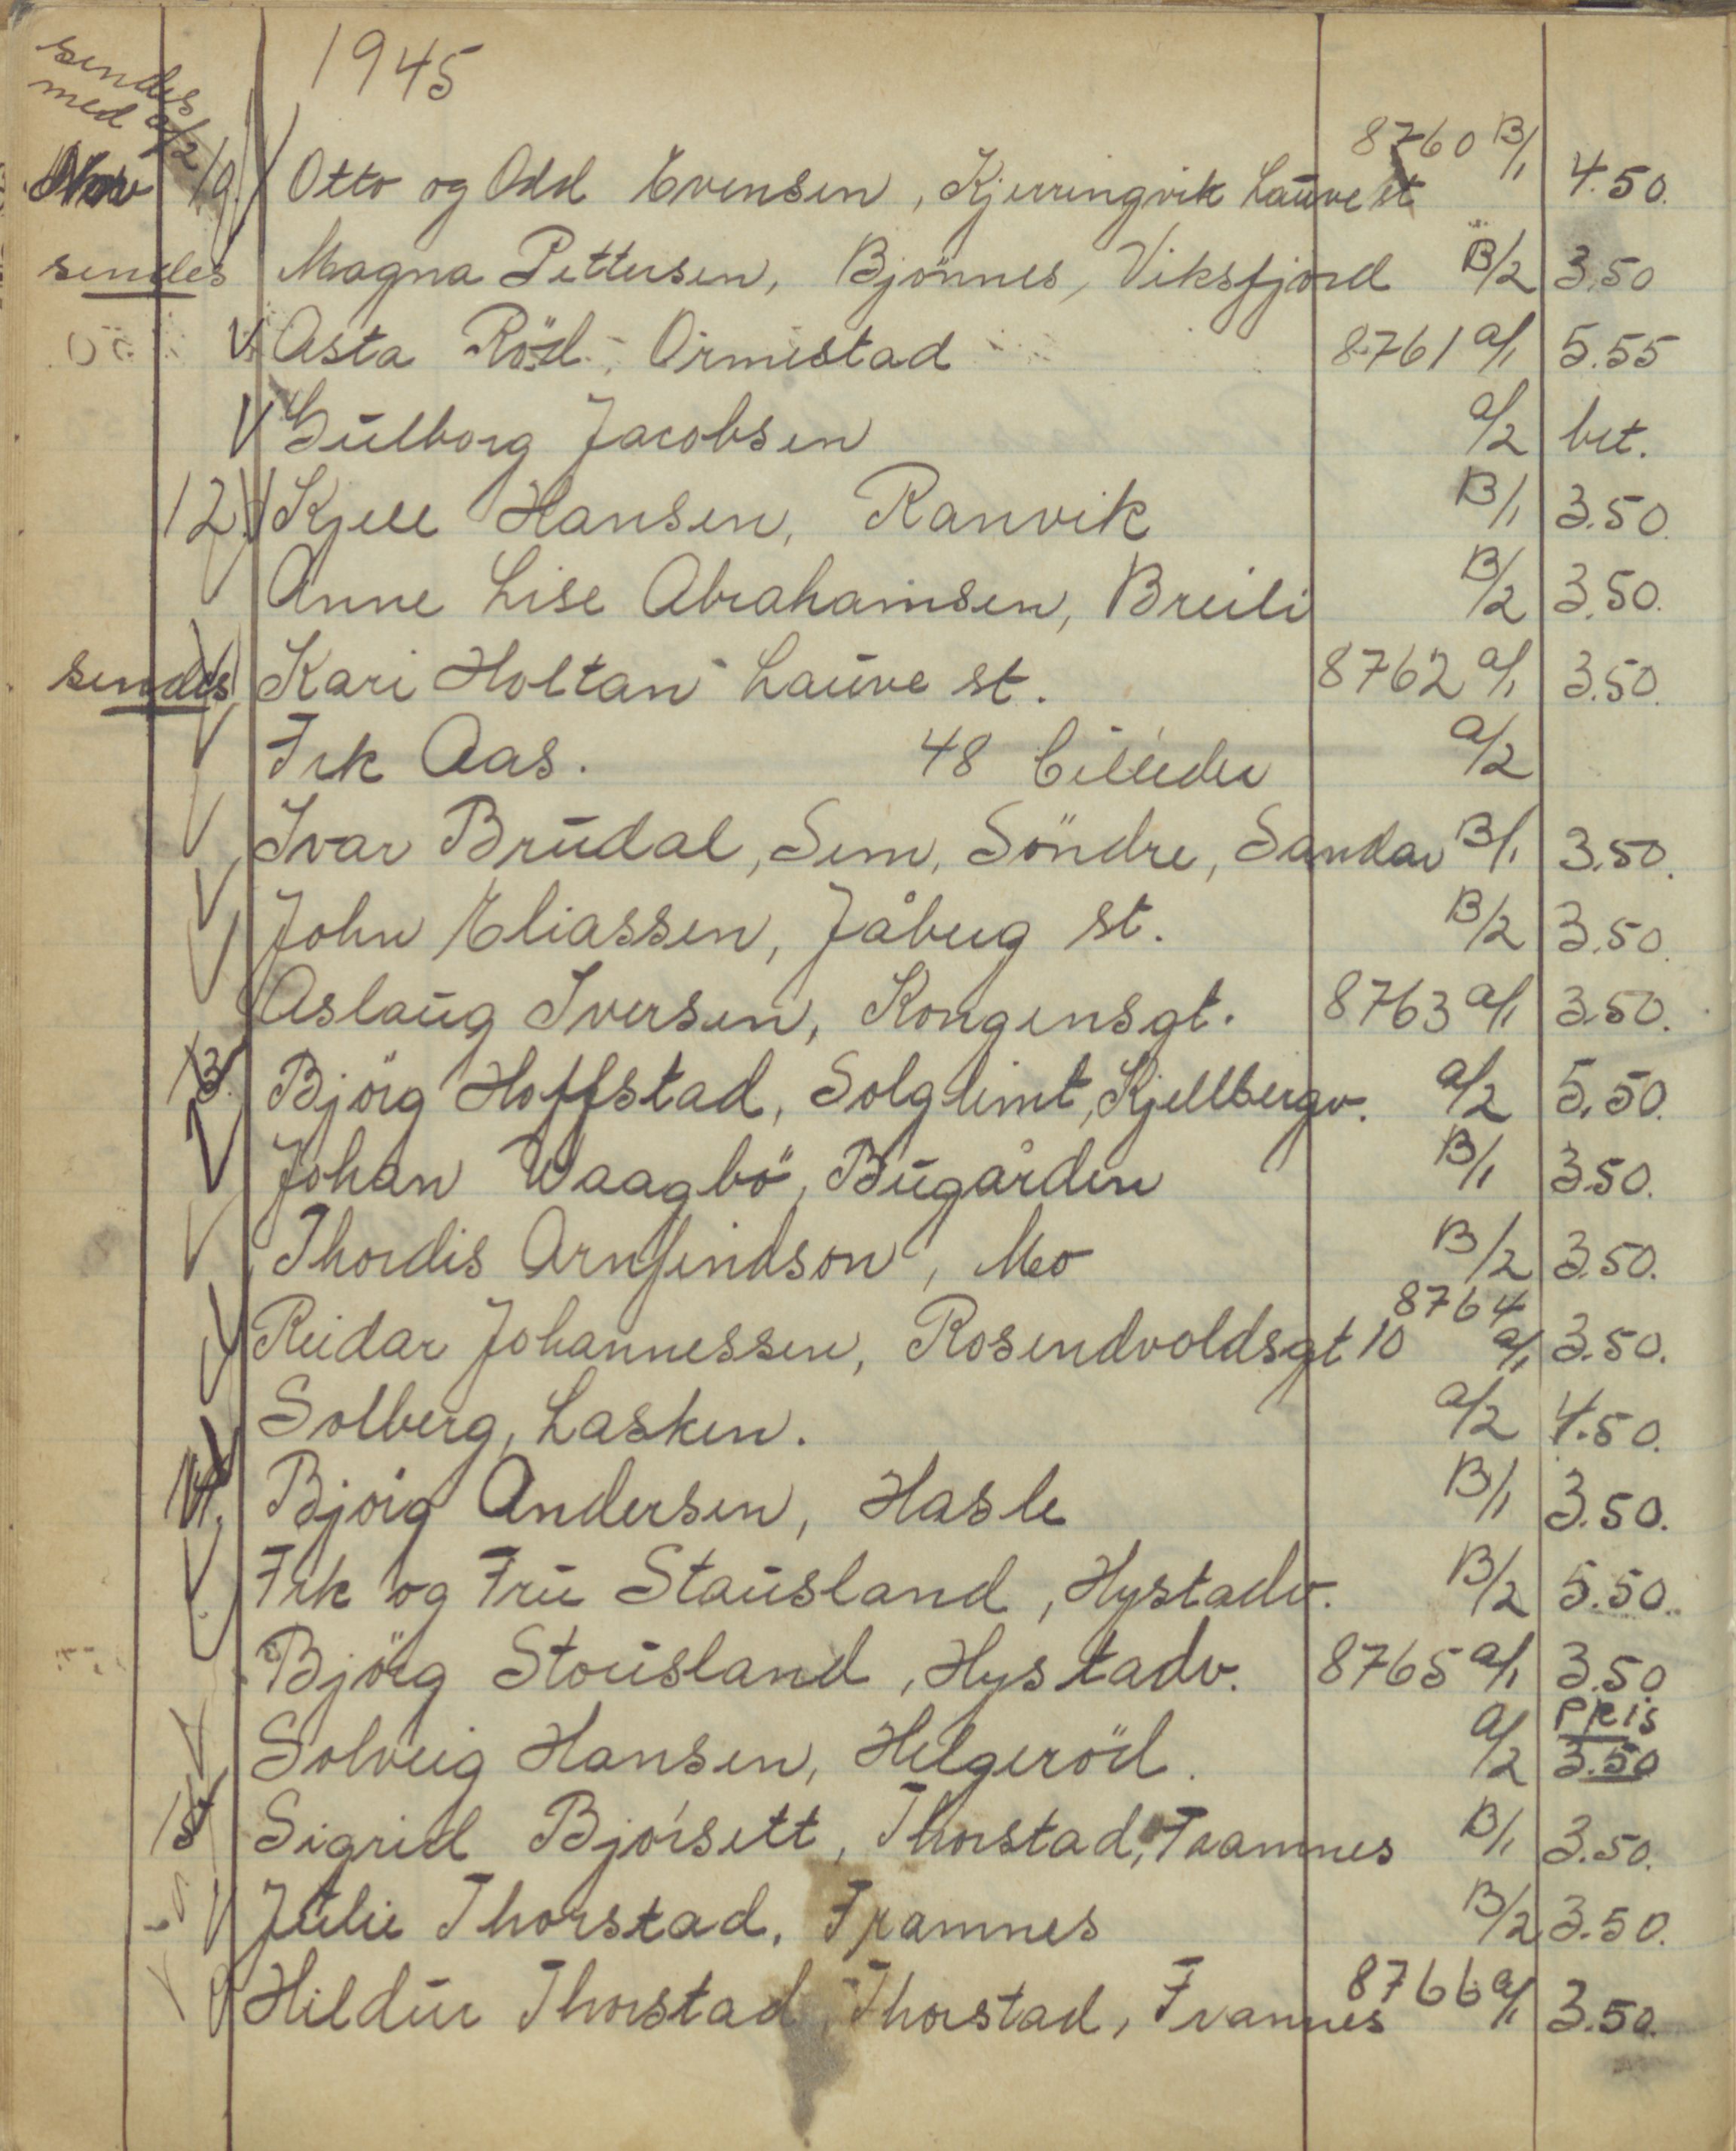 1945
sendes
med a/2
Nov 10. Otto og Odd Evensen, Kjerringvik Lauve st 8760 B/1 4.50.
sendes Magna Pettersen, Bjönnes, Viksfjord B/2 3.50
V Asta Röd, Ormestad 8761 a/1 5.55
V Gulborg Jacobsen a/2 bet.
12. V Kjell Hansen, Ranvik B/1 3.50.
Anne Lise Abrahamsen, Breili B/2 3.50.
sendes Kari Holtan Lauve st. 8762 a/1 3.50.
Frk Aas. 48 billeder a/2
Ivar Brudal, Sem, Söndre, Sandar B/1 3.50.
John Eliassen, Jåberg st. B/2 3.50.
Aslaug Iversen, Kongensgt. 8763 a/1 3.50.
13. Björg Hoffstad, Solglimt, Kjellbergv. a/2 5.50.
Johan Waagbö, Bugården B/1 3.50.
Thordis Arnfindson, Mo B/2 3.50.
Reidar Johannessen, Rosendvoldsgt 10 8764 a/1 3.50.
Solberg, Lasken. a/2 4.50.
14. Björg Andersen, Hasle B/1 3.50.
Frk og Fru Stausland, Hystadv. B/2 5.50.
Björg Stousland, Hystadv. 8765 a/1 3.50
Solveig Hansen, Helgeröd. a/2 Pris 3.50
15 Sigrid Bjórsett, Thorstad, Framnes B/1 3.50.
V Julie Thorstad, Framnes B/2 3.50.
Hildur Thorstad, Thorstad, Framnes 8766 a/1 3.50.